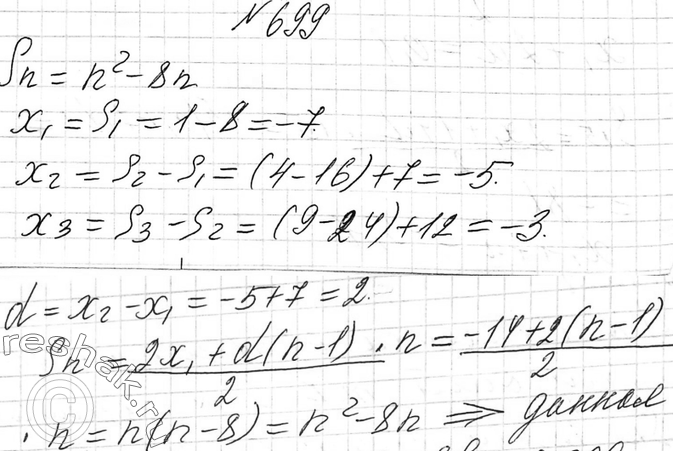 №699
Sn = n² - 8n
x₁ = S₁ = 1 - 8 = -7.
x₂ = S₂ - S₁ = (4 - 16) + 7 = -5.
x₃ = S₃ - S₂ = (9 - 24) + 12 = -3.
d = x₂ - x₁ = -5 + 7 = 2.
Sn = (2x₁ + d(n - 1))/2 · n = (-14 + 2(n - 1))/2
· n = n(n - 8) = n² - 8n ⇒ данная
reshak.ru